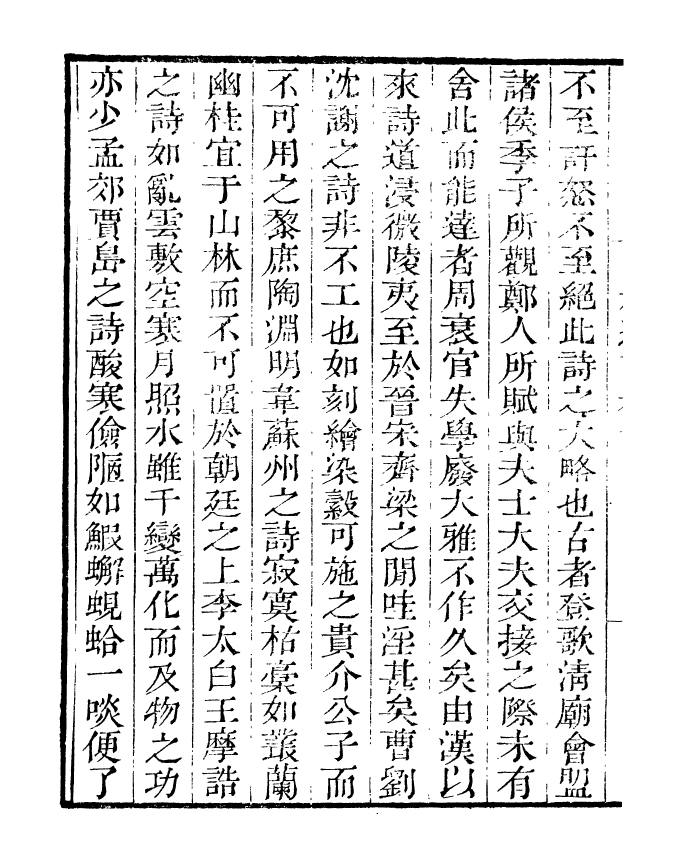 不至訐怒不至絕此詩之大略也古者登歌清廟會盟
諸侯季子所觀鄭人所賦與夫士大夫交接之際未有
舍此而能達者周衰官失學廢大雅不作久矣由漢以
來詩道浸微陵夷至於晉宋齊梁之閒哇淫甚矣曹劉
沈謝之詩非不工也如刻繪染縠可施之貴介公子而
不可用之黎庶陶淵明韋蘇州之詩寂寞枯槀如叢蘭
幽桂宜于山林而不可置於朝廷之上李太白王摩詰
之詩如亂雲敷空寒月照水雖千變萬化而及物之功
亦少孟郊賈島之詩酸寒儉陋如鰕蠏蜆蛤一啖便了